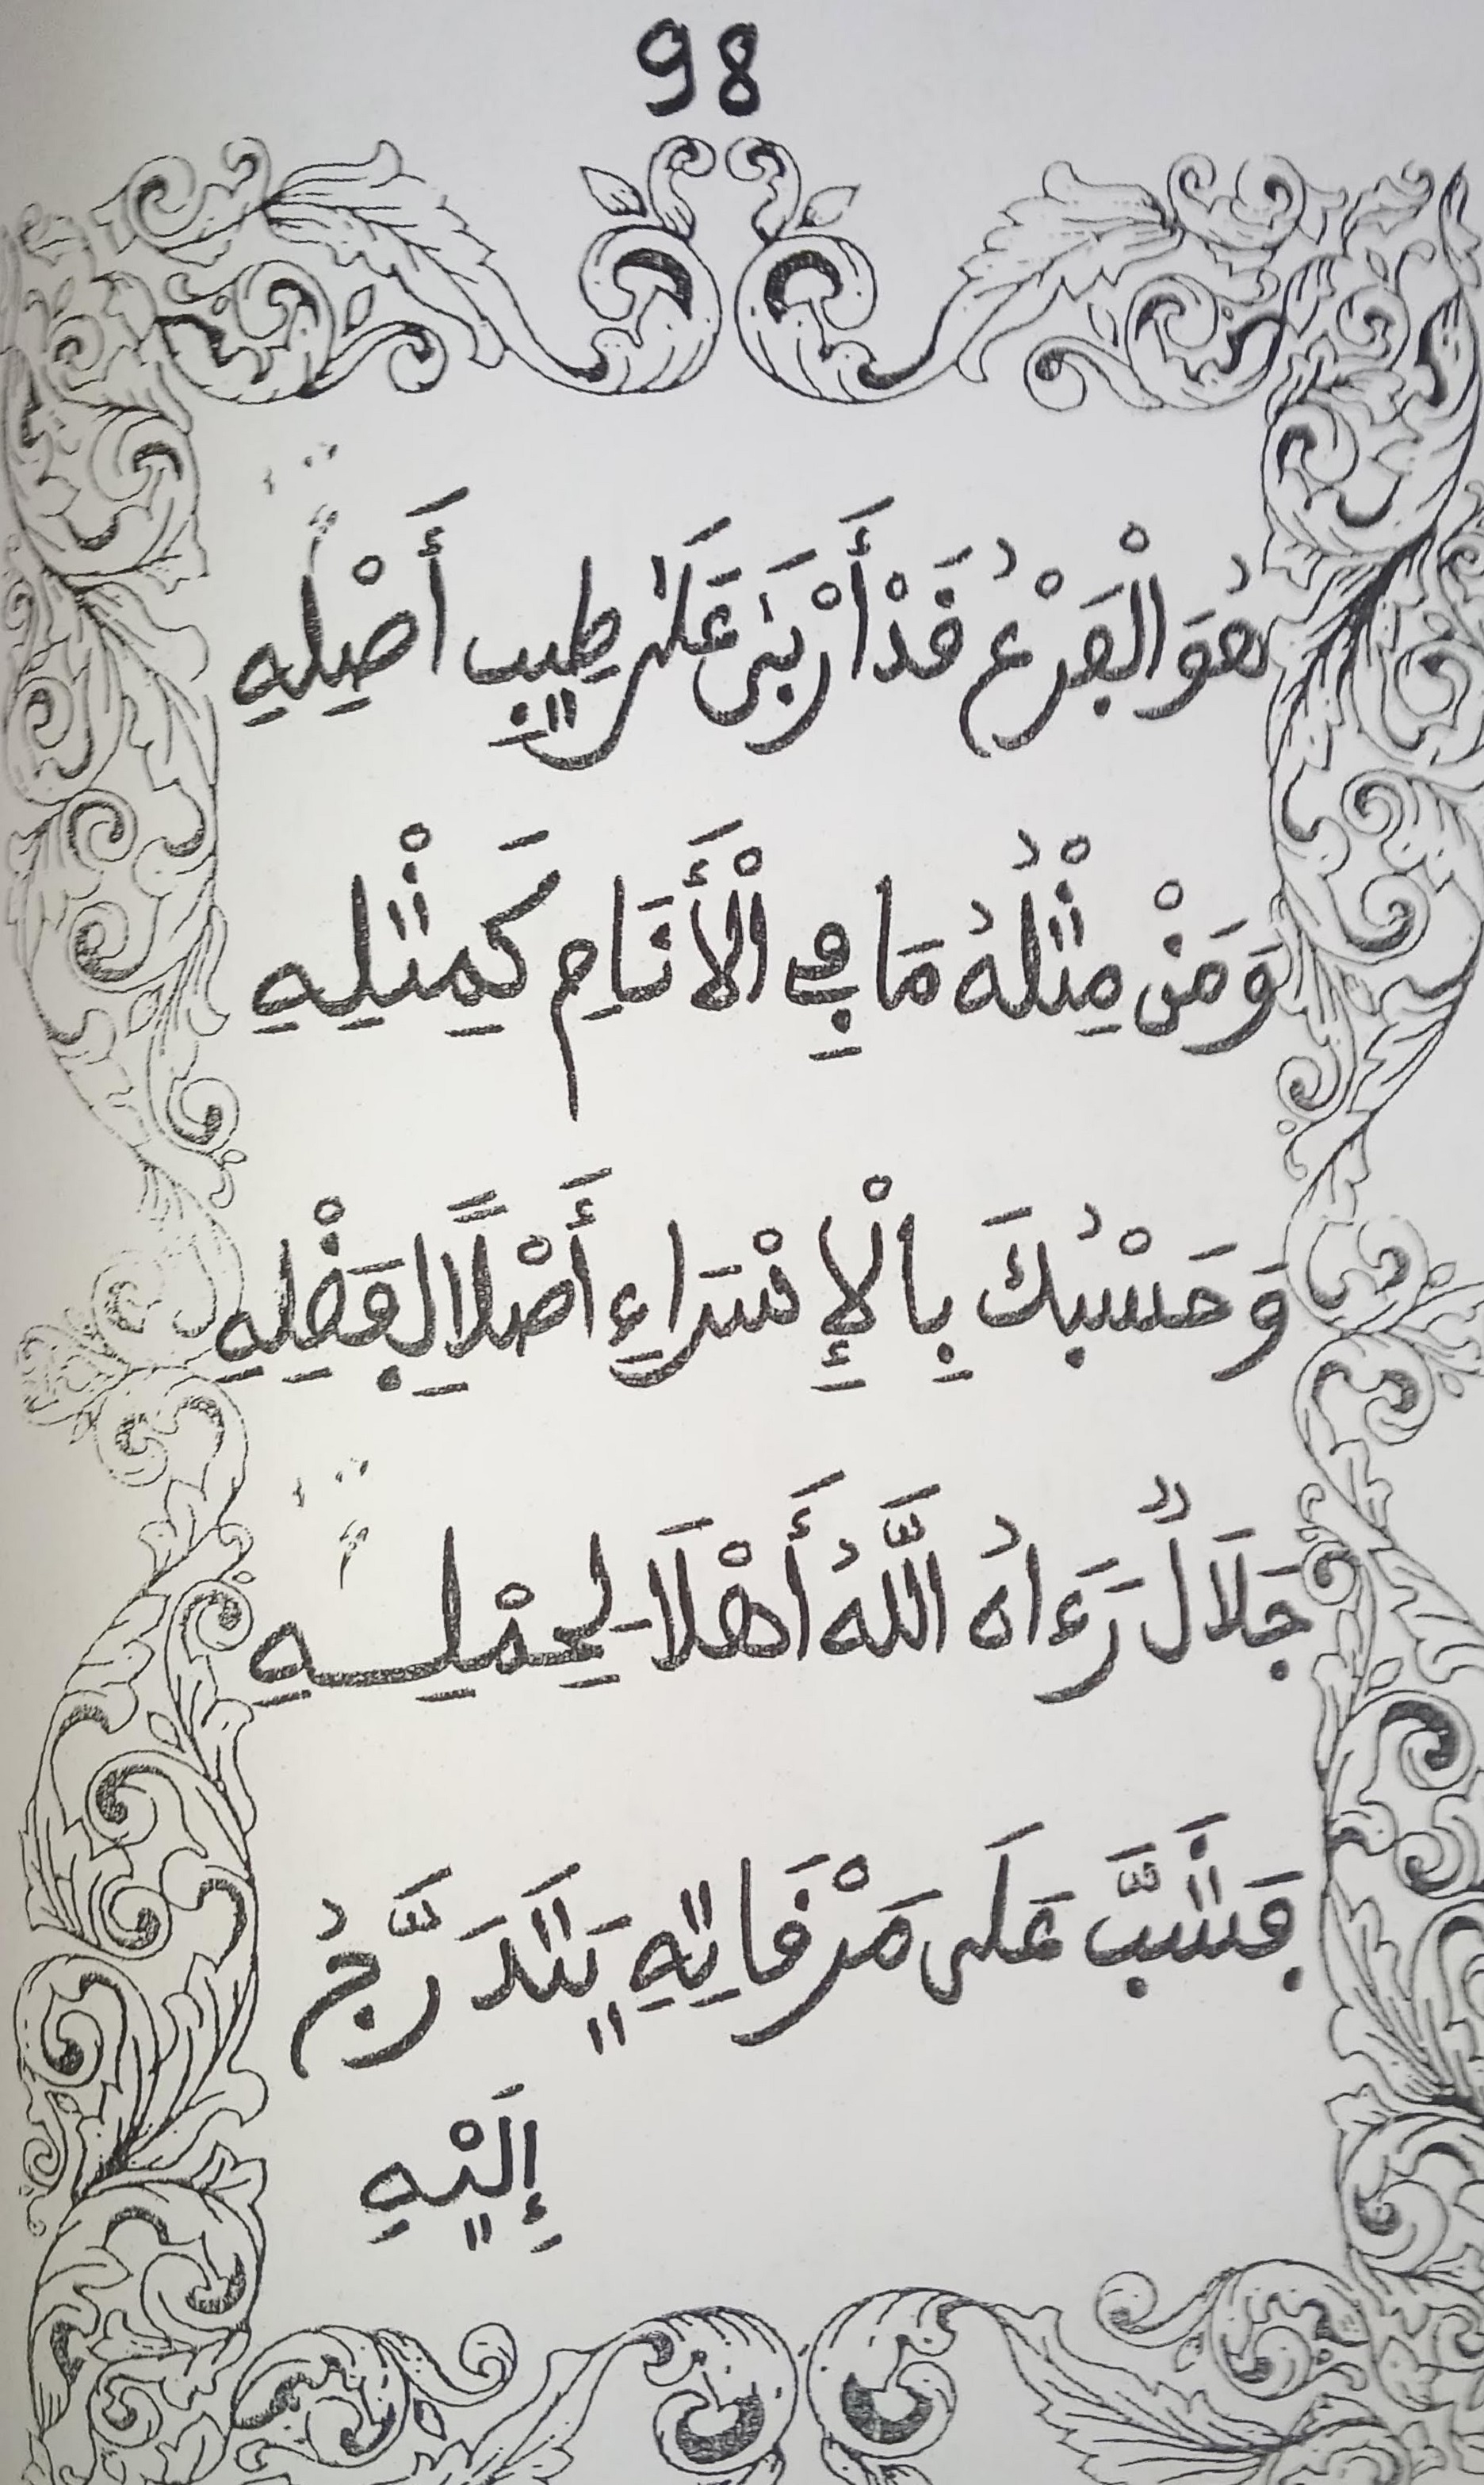 98
هُوَ الْفَرْعُ قَدْ أَرْبَىٰ عَلَىٰ طِيبِ أَصْلِهِ
وَمَنْ مِثْلُهُ مَا فِي الْأَنَامِ كَمِثْلِهِ
وَحَسْبُكَ بِالْإِسْرَاءِ أَصْلًا لِفَضْلِهِ
جَلَالٌ رَءَاهُ اللَّهُ أَهْلَا لِحِمْلِهِ
فَشَبَّ عَلَى مَرْقَاتِهِ يَتَدَرَّجُ
إِلَيْهِ